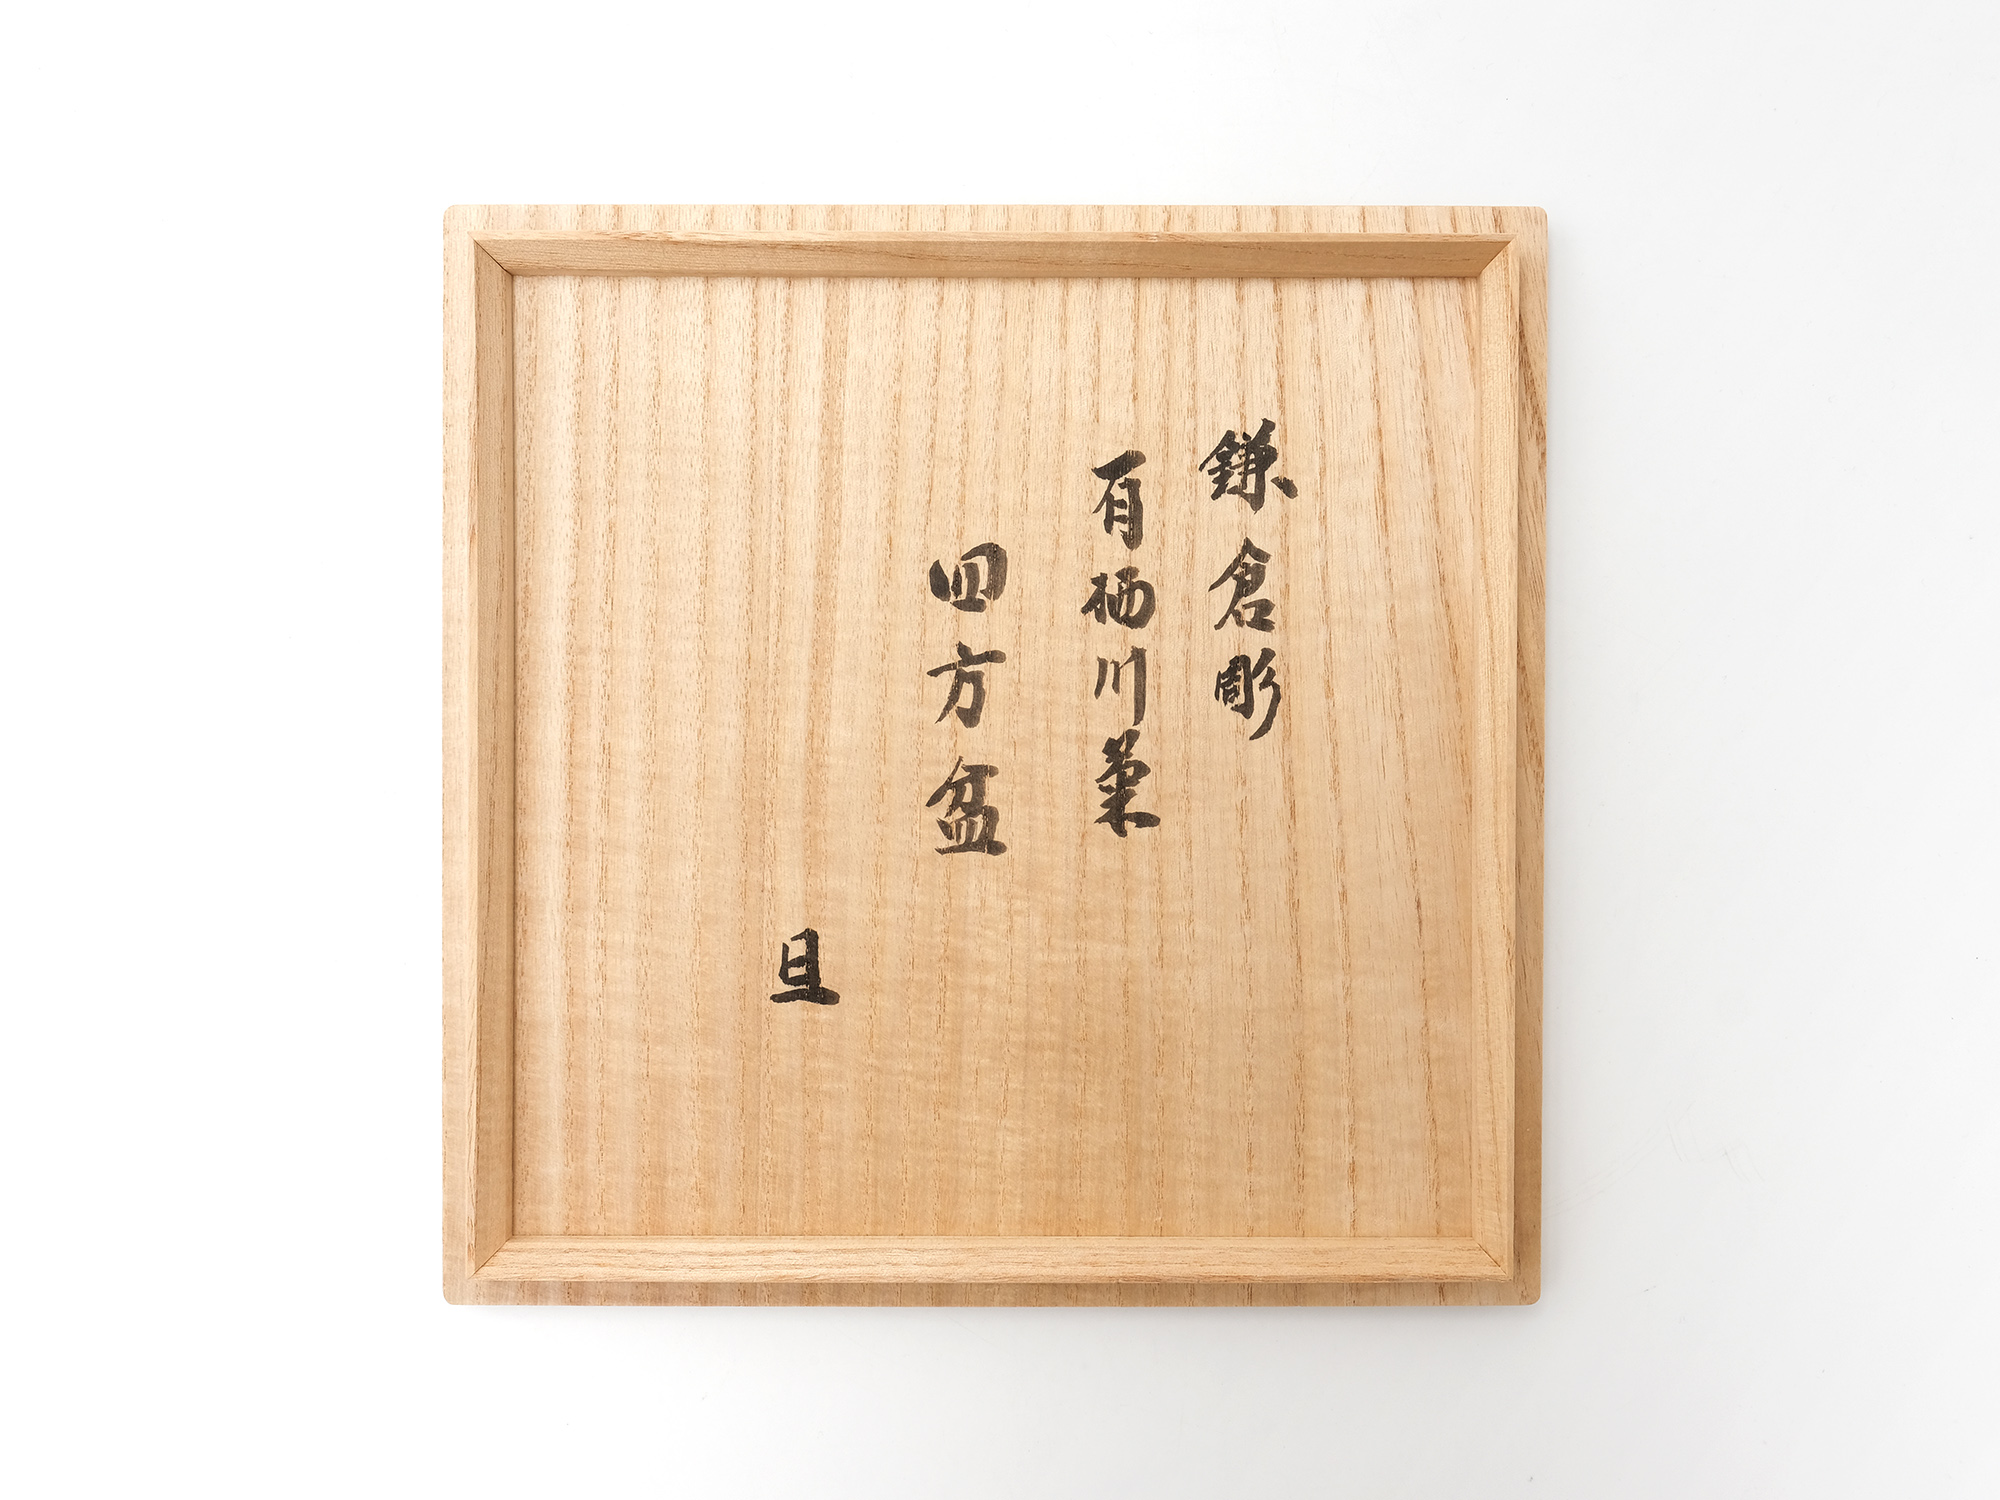 鎌倉彫
有栖川菊
四方盆
且